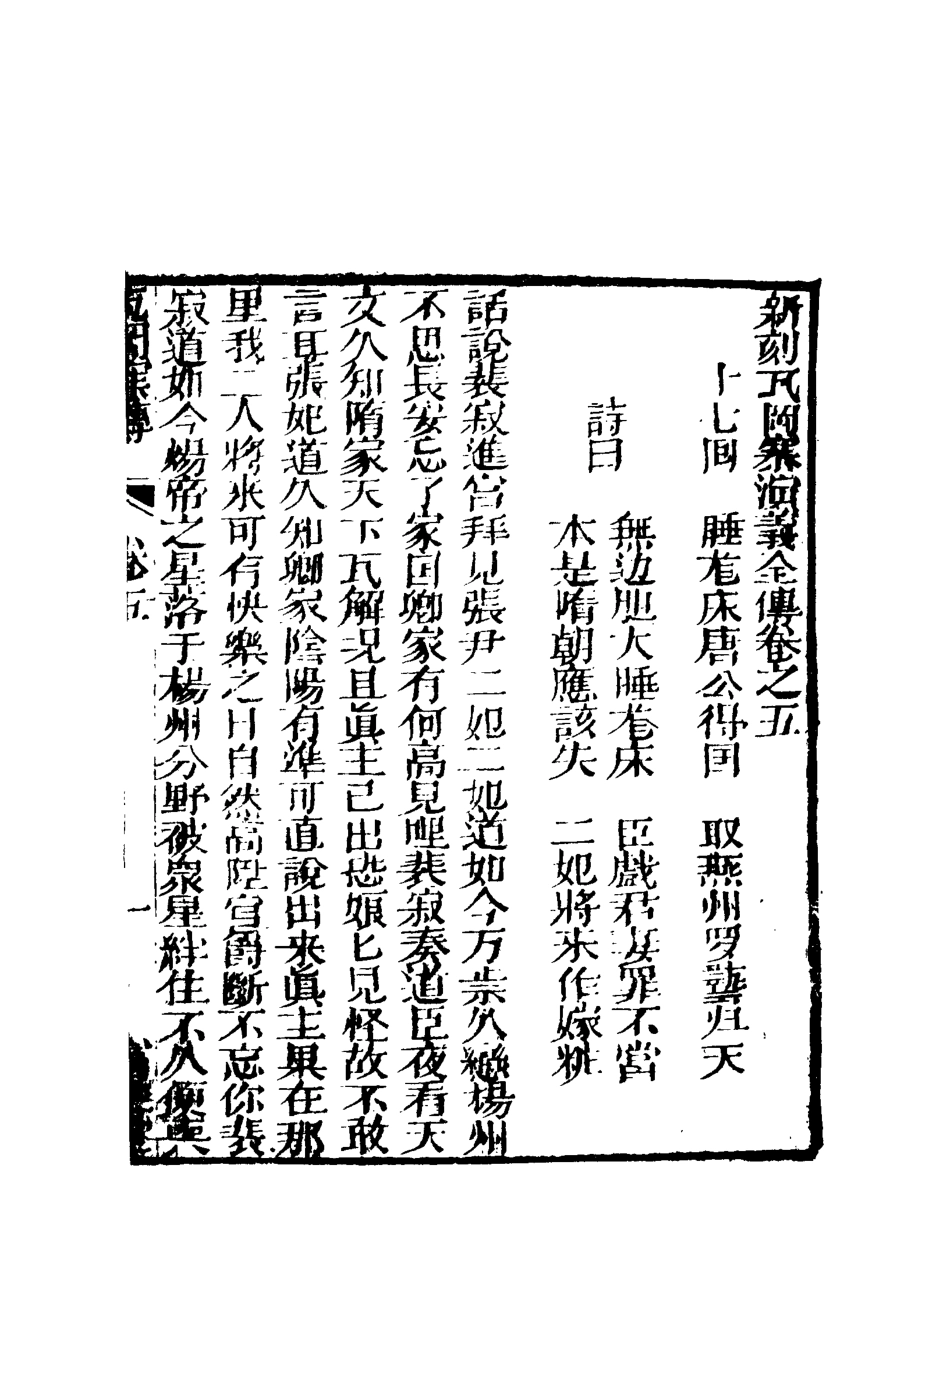 新刻瓦岡寨演義全傳卷之五
十七回　睡龙床唐公得囯　取燕州罗藝归天
詩曰
無边胆大睡龙床　臣戲君妻罪不當
本是隋朝應該失　二妃將來作嫁粧
話說裴寂進宫拜見張尹二妃二妃道如今万歲久戀楊州
不思長安忘了家囯卿家有何高見哩裴寂奏道臣夜看天
文久知隋家天下瓦解况且眞主已出恐娘匕見怪故不敢
言耳張妃道久知卿家陰陽有準可直說出來眞主果在那
里我二人將來可有快樂之日自然高陞官爵斷不忘你裴
寂道如今煬帝之星落于楊州分野被衆星絆住不久便
瓦岡寨傳　卷五　一